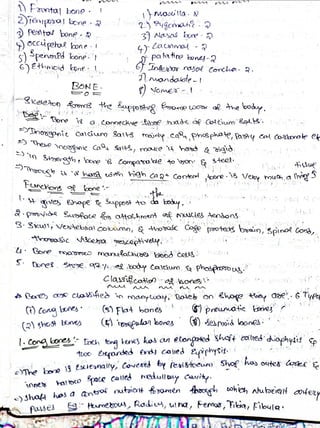 1) Frontal bone - 1
2) Temporal bone - 2
3) Parital bone - 2
4) occipetal bone - 1
5) Spenoid bone - 1
6) Ethmoid bone - 1
1) Maxilla - 2
2) Zygomatic - 2
3) Nasal bone - 2
4) Lacrimal - 2
5) palatine bones - 2
6) Inferior nasal concha - 2
7) mandable - 1
8) Vomer - 1
BONE
Skeleton forms the supporting frame work of the body.
Def:- Bone is a connective tissue made of calcium salts.
=> Inorganic calcium salts mainly phosphate, partly cal carbonate
=> These inorganic ca salts, make it hard & rigid.
=> In strength, bone is comparable to iron & steel.
=> Through it is hard with high ca2+ content, bone is very much a living tissue
Functions of bone:-
1. It gives shape & support to the body.
2. provide surface for attachment of muscles tendons
3. Skull, vertebral column, & thoracic cage protects brain, spinal cord, thorassic viscera respectively.
4. Bone marrow manufactures blood cells.
5. Bones store 97% of body calcium & phosphorous.
Classification of bones:-
Bones are classified in many way, Based on shape they are:- 6 types
(1) long bones (3) Flat bones (5) pneumatic bones
(2) short bones (4) irregular bones (6) sesmoid bones
1. Long bones:- Each long bones has an elongated shaft called diaphysis & two expanded ends called epiphysis.
=> The bone is externally, covered by periosteum shaf has outer cortex & inner hallow space called medullary cavity.
=> shaft has a nutrient foramen through which nutrient artery passes Eg:- Humerous, Radius, ulna, Femur, Tibia, Fibula.